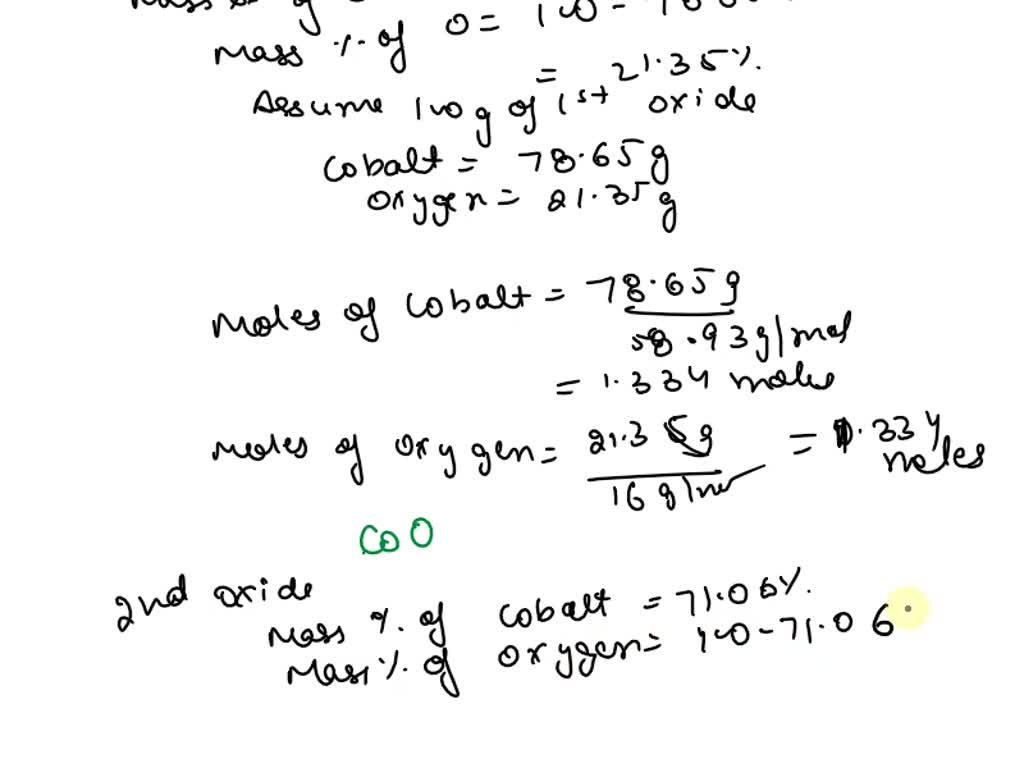 Mass % of
Mass % of O = 100 -
= 21.35%.
Assume 100 g of 1st oxide
cobalt = 78.65 g
oxygen = 21.35 g
Moles of cobalt = 78.65 g
58.93 g/mol
= 1.334 moles
Moles of oxygen = 21.35 g = 1.334
16 g/mol moles
CoO
2nd oxide
Mass % of cobalt = 71.06%.
Mass % of oxygen = 100-71.06